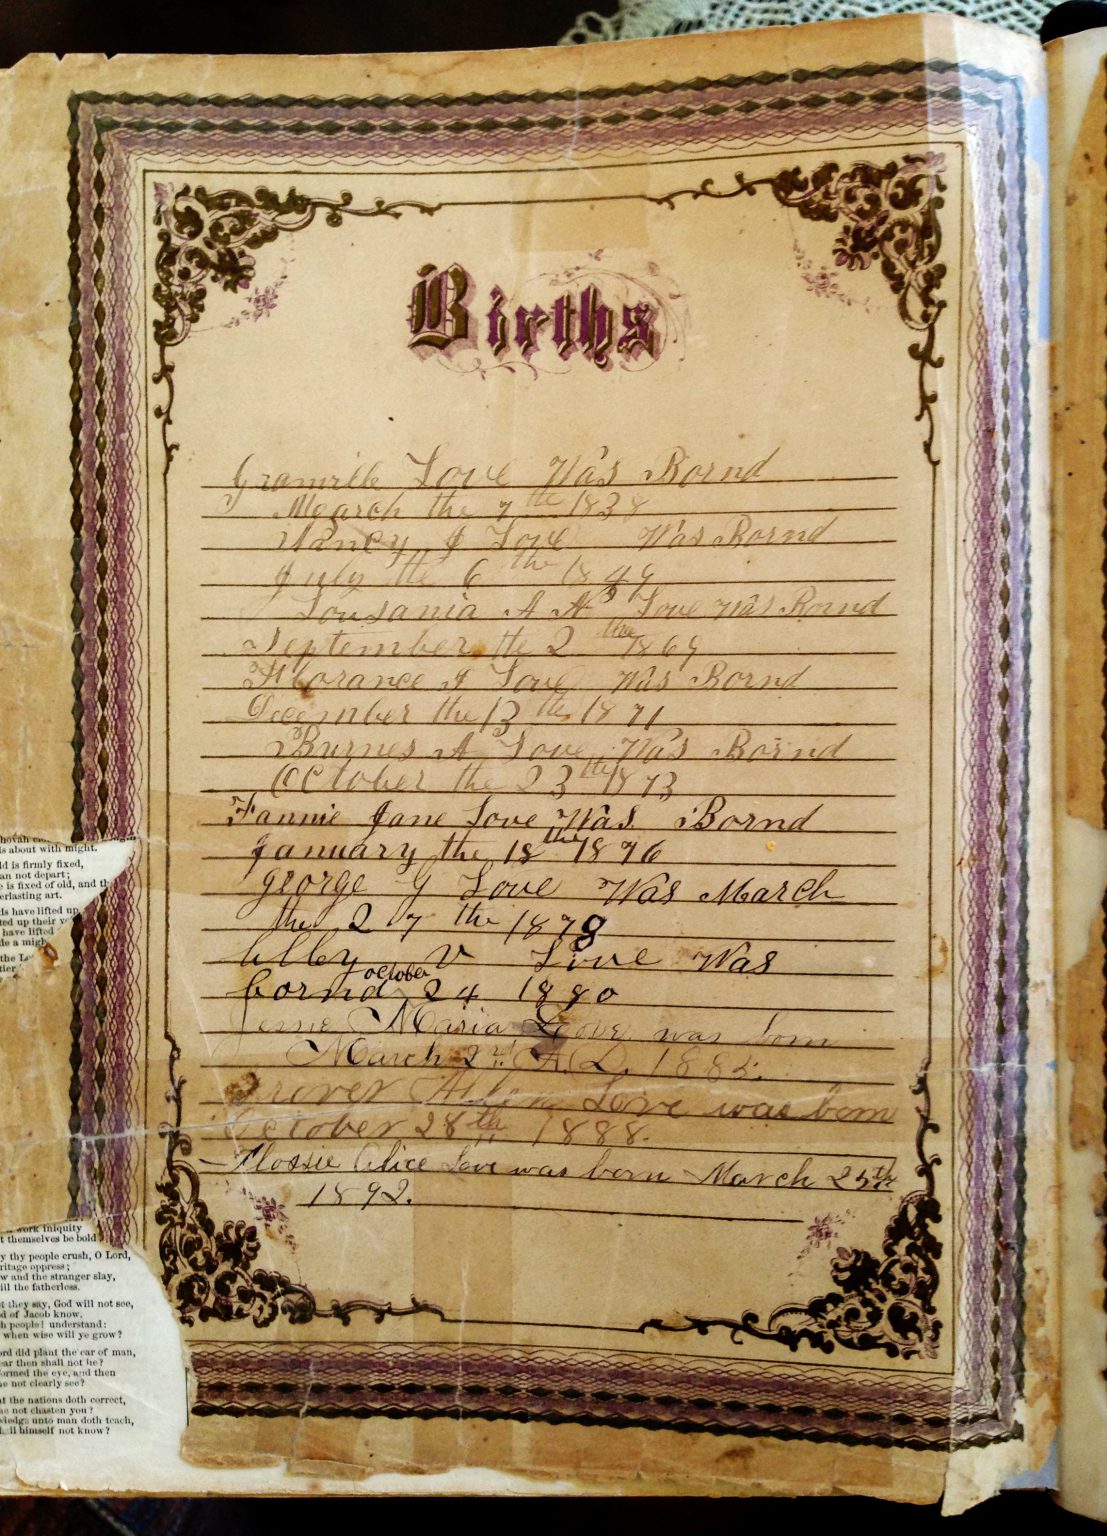 Births
Granville Love Was Bornd
March the 7 the 1838
Nancy J Love Was Bornd
July the 6 the 1849
Lousania A A Love Was Bornd
September the 2 the 1869
Florance I Love Was Bornd
December the 13 the 1871
Burnes A Love Was Bornd
October the 23 the 1873
Fannie Jane Love Was Bornd
January the 18 the 1876
george g Love Was March
the 27 the 1878
V Love Was
bornd october 24 1880
Maria Love was born
March 2nd A.D. 1885.
Grover Love was born
October 28th 1888.
Flossie Alice Love was born March 25th
1892.
is about with might.
ld is firmly fixed,
an not depart;
e is fixed of old, and
erlasting art.
ds have lifted up
ted up their
have lifted
de a
the
work iniquity
t themselves be bold
y thy people crush, O Lord,
ritage oppress;
w and the stranger slay,
ill the fatherless.
t they say, God will not see,
d of Jacob know.
h people! understand:
when wise will ye grow?
ord did plant the ear of man,
ear then shall not he?
ormed the eye, and then
he not clearly see?
at the nations doth correct,
he not chasten you?
wledge unto man doth teach,
himself not know?